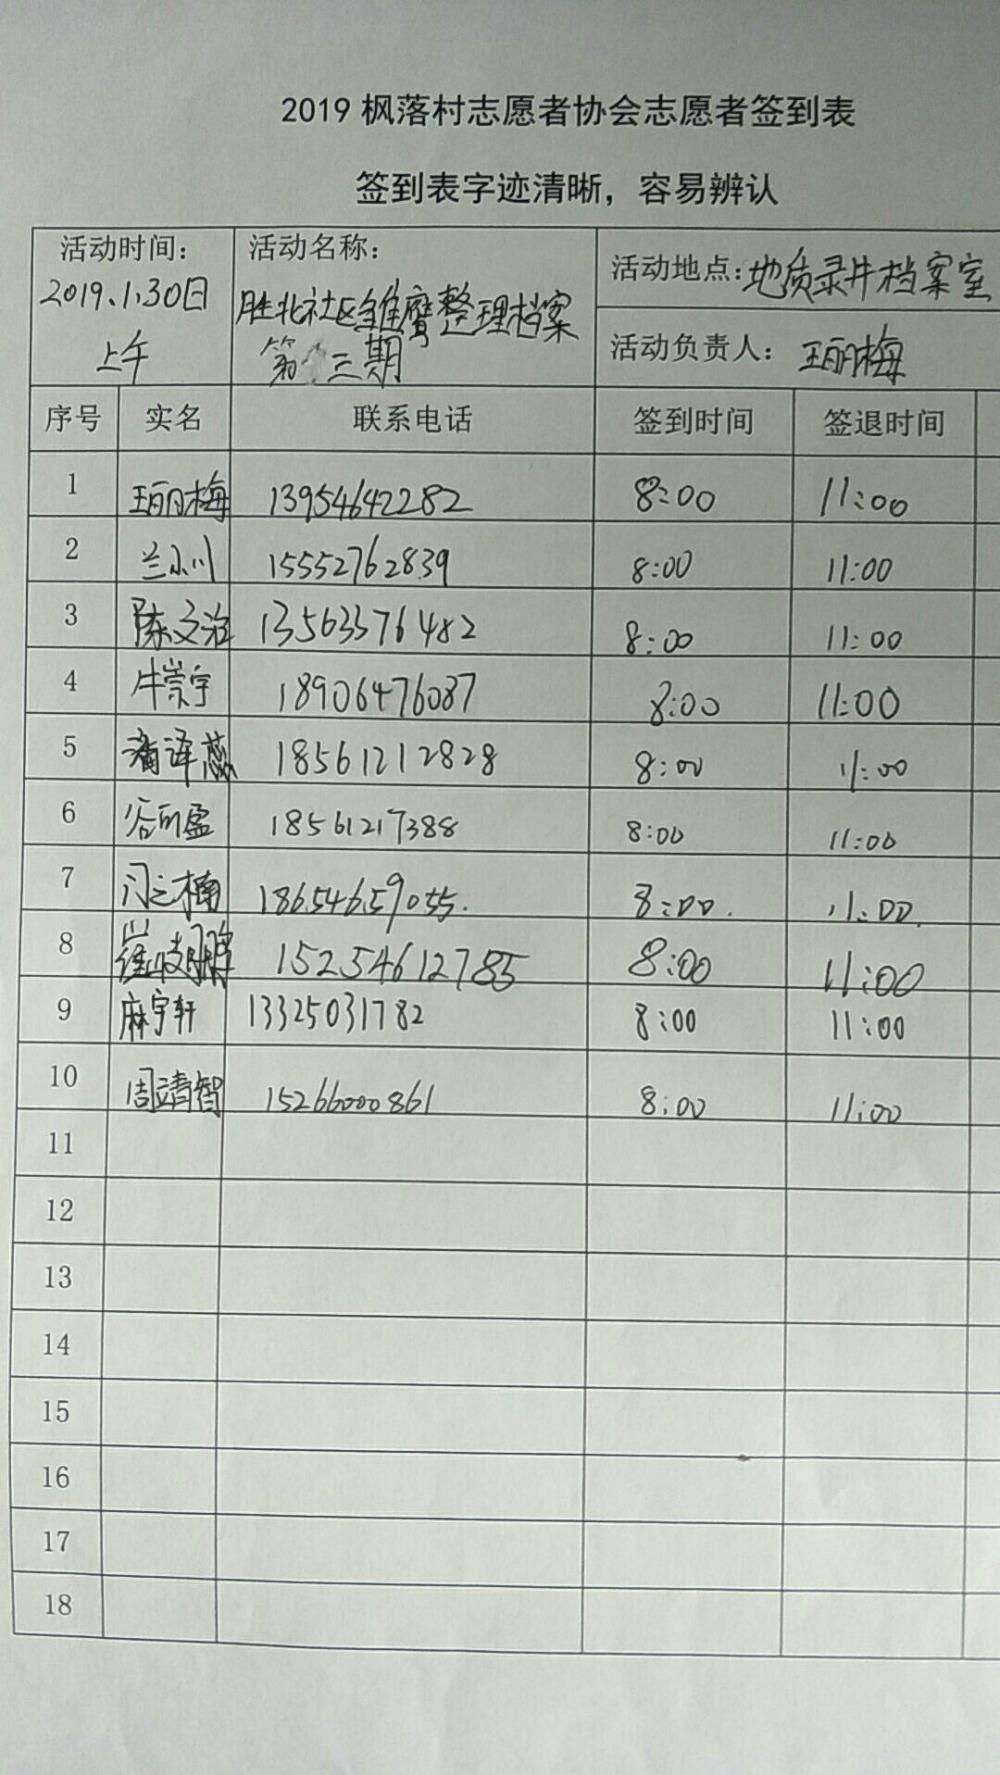 2019枫落村志愿者协会志愿者签到表
签到表字迹清晰，容易辨认
活动时间：
2019.1.30日
上午
活动名称：
胜北社区雏鹰整理档案
第三期
活动地点：地质录井档案室
活动负责人：王丽梅
序号 实名 联系电话 签到时间 签退时间
1 王丽梅 13954642282 8:00 11:00
2 兰小川 15552762839 8:00 11:00
3 陈文治 13563376482 8:00 11:00
4 牛崇宇 18906476087 8:00 11:00
5 潘泽蕊 18561212828 8:00 11:00
6 谷所盈 18561217388 8:00 11:00
7 闫之楠 18654659055. 8:00. 11:00.
8 崔峻鹏 15254612785 8:00 11:00
9 麻宇轩 13325031782 8:00 11:00
10 周靖智 15266000861 8:00 11:00
11
12
13
14
15
16
17
18